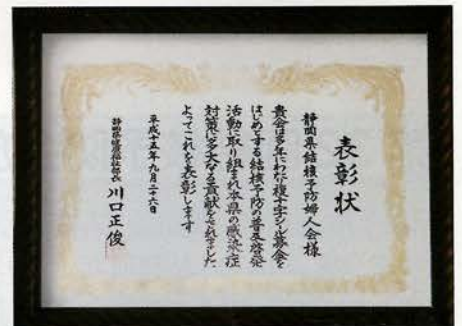 表彰状
静岡県結核予防婦人会様
貴会は多年にわたり複十字シール募金を
はじめとする結核予防の普及啓発
活動に取り組まれ本県の感染症
対策に多大なる貢献をされました
よってこれを表彰します
平成十五年九月二十六日
静岡県健康福祉部長 川口正俊